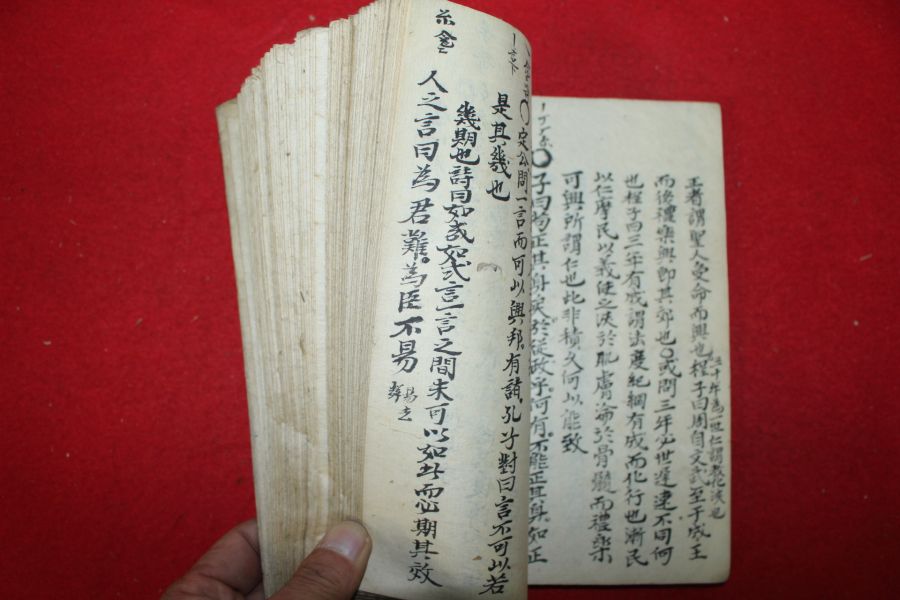 王者謂聖人受命而興也程子曰周自文武至于成王
三十年爲一世仁謂敎化浹也
而後禮樂興即其效也○或問三年必世遲速不同何
也程子曰三年有成謂法度紀綱有成而化行也漸民
以仁摩民以義使之浹於肌膚淪於骨髓而禮樂
可興所謂仁也此非積久何以能致
○子曰苟正其身矣於從政乎何有不能正其身如正
○定公問一言而可以興邦有諸孔子對曰言不可以若
是其幾也
幾期也詩曰如幾如式言一言之間未可以如此而必期其效
人之言曰爲君難爲臣不易
易去